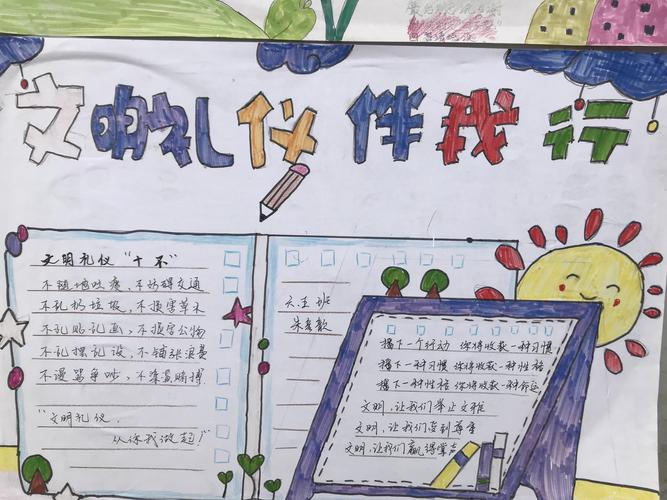 文明礼仪伴我行
文明礼仪“十不”
不随地吐痰,不妨碍交通
不乱扔垃圾,不损害草木
不乱贴乱画,不损害公物
不乱摆乱设,不铺张浪费
不漫骂争吵,不染黄赌博
“文明礼仪,
从你我做起!”
六五班
播下一个行动 你将收获一种习惯
播下一种习惯 你将收获一种性格
播下一种性格 你将收获一种命运
文明,让我们举止文雅
文明,让我们受到尊重
文明,让我们赢得掌声